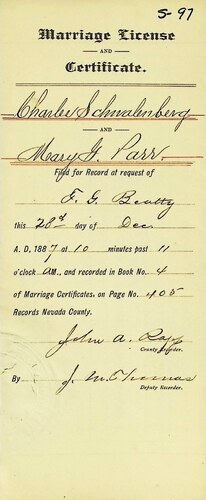 S-97
Marriage License
AND
Certificate.
Charles Schwalenberg
AND
Mary G. Parr.
Filed for Record at request of
F. G. Beatty
this 28d day of Dec
A. D. 1887 at 10 minutes past 11
o'clock A.M., and recorded in Book No. 4
of Marriage Certificates, on Page No. 405
Records Nevada County.
John A. Rapp
County Recorder.
By J. M. Thomas
Deputy Recorder.